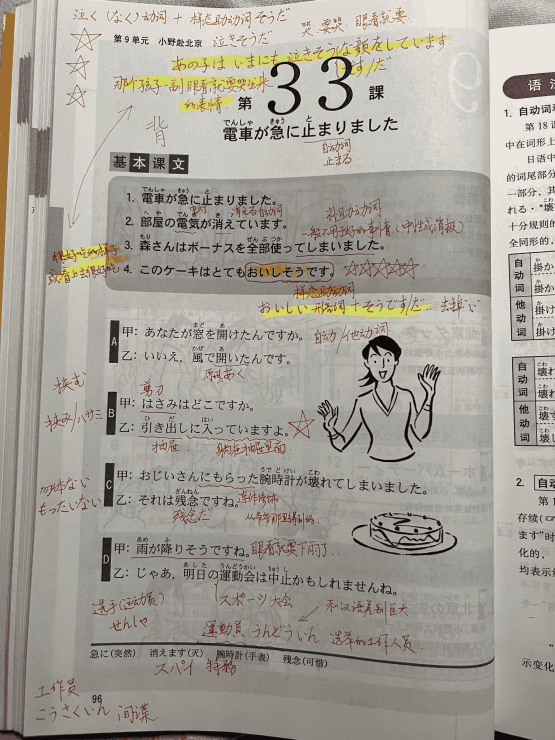 泣く(なく)动词 + 样态助动词そうだ 哭 要哭 眼看就要
第9单元 小野赴北京 泣きそうだ
あの子はいまにも泣きそうな顔をしています
ます/だ
那个孩子一副眼看就要哭出来
的表情
第33課
背
電車が急に止まりました
でんしゃ きゅう と
自动词
止まる
基本课文
でんしゃ きゅう と
1. 電車が急に止まりました。
消える自动词
へ や でん き き
2. 部屋の電気が消えています。
一般不用于好的事情(中性或消极)
もり ぜん ぶ つか
3. 森さんはボーナスを全部使ってしまいました。
4. このケーキはとてもおいしそうです。
样态助动词
おいしい 形容词+そうです/だ 去掉い
A
まど あ
甲: あなたが窓を開けたんですか。
自动/他动词
かぜ あ
乙: いいえ, 風で開いたんです。
原因 あく
挟む
剪刀
B
甲: はさみはどこですか。
挟み/ハサミ
ひ だ はい
乙: 引き出しに入っていますよ。
抽屉
C
うで ど けい こわ
甲: おじいさんにもらった腕時計が壊れてしまいました。
もったいない
ざんねん
乙: それは残念ですね。
残念だ
D
あめ ふ
甲: 雨が降りそうですね。
眼看就要下雨了…
あした うんどうかい ちゅう し
乙: じゃあ, 明日の運動会は中止かもしれませんね。
选手(运动员)
スポーツ大会
和汉语差别巨大
せんしゃ
運動員、うんどういん 选举的工作人员
急に(突然) 消えます(灭) 腕時計(手表) 残念(可惜)
スパイ 特務
工作員
96
こうさくいん 间谍
语法
1. 自动词
第18课
中在词形上
日语中
的词尾部分
一部分，其
れる・“壊
十分规则的
全同形的，
自动词
掛か
掛か
他动词
掛け
掛け
自动词
壊れ
壊れ
他动词
壊し
壊し
2. 自动
第1
存续(
ます”时
化的，
均表示
示变化